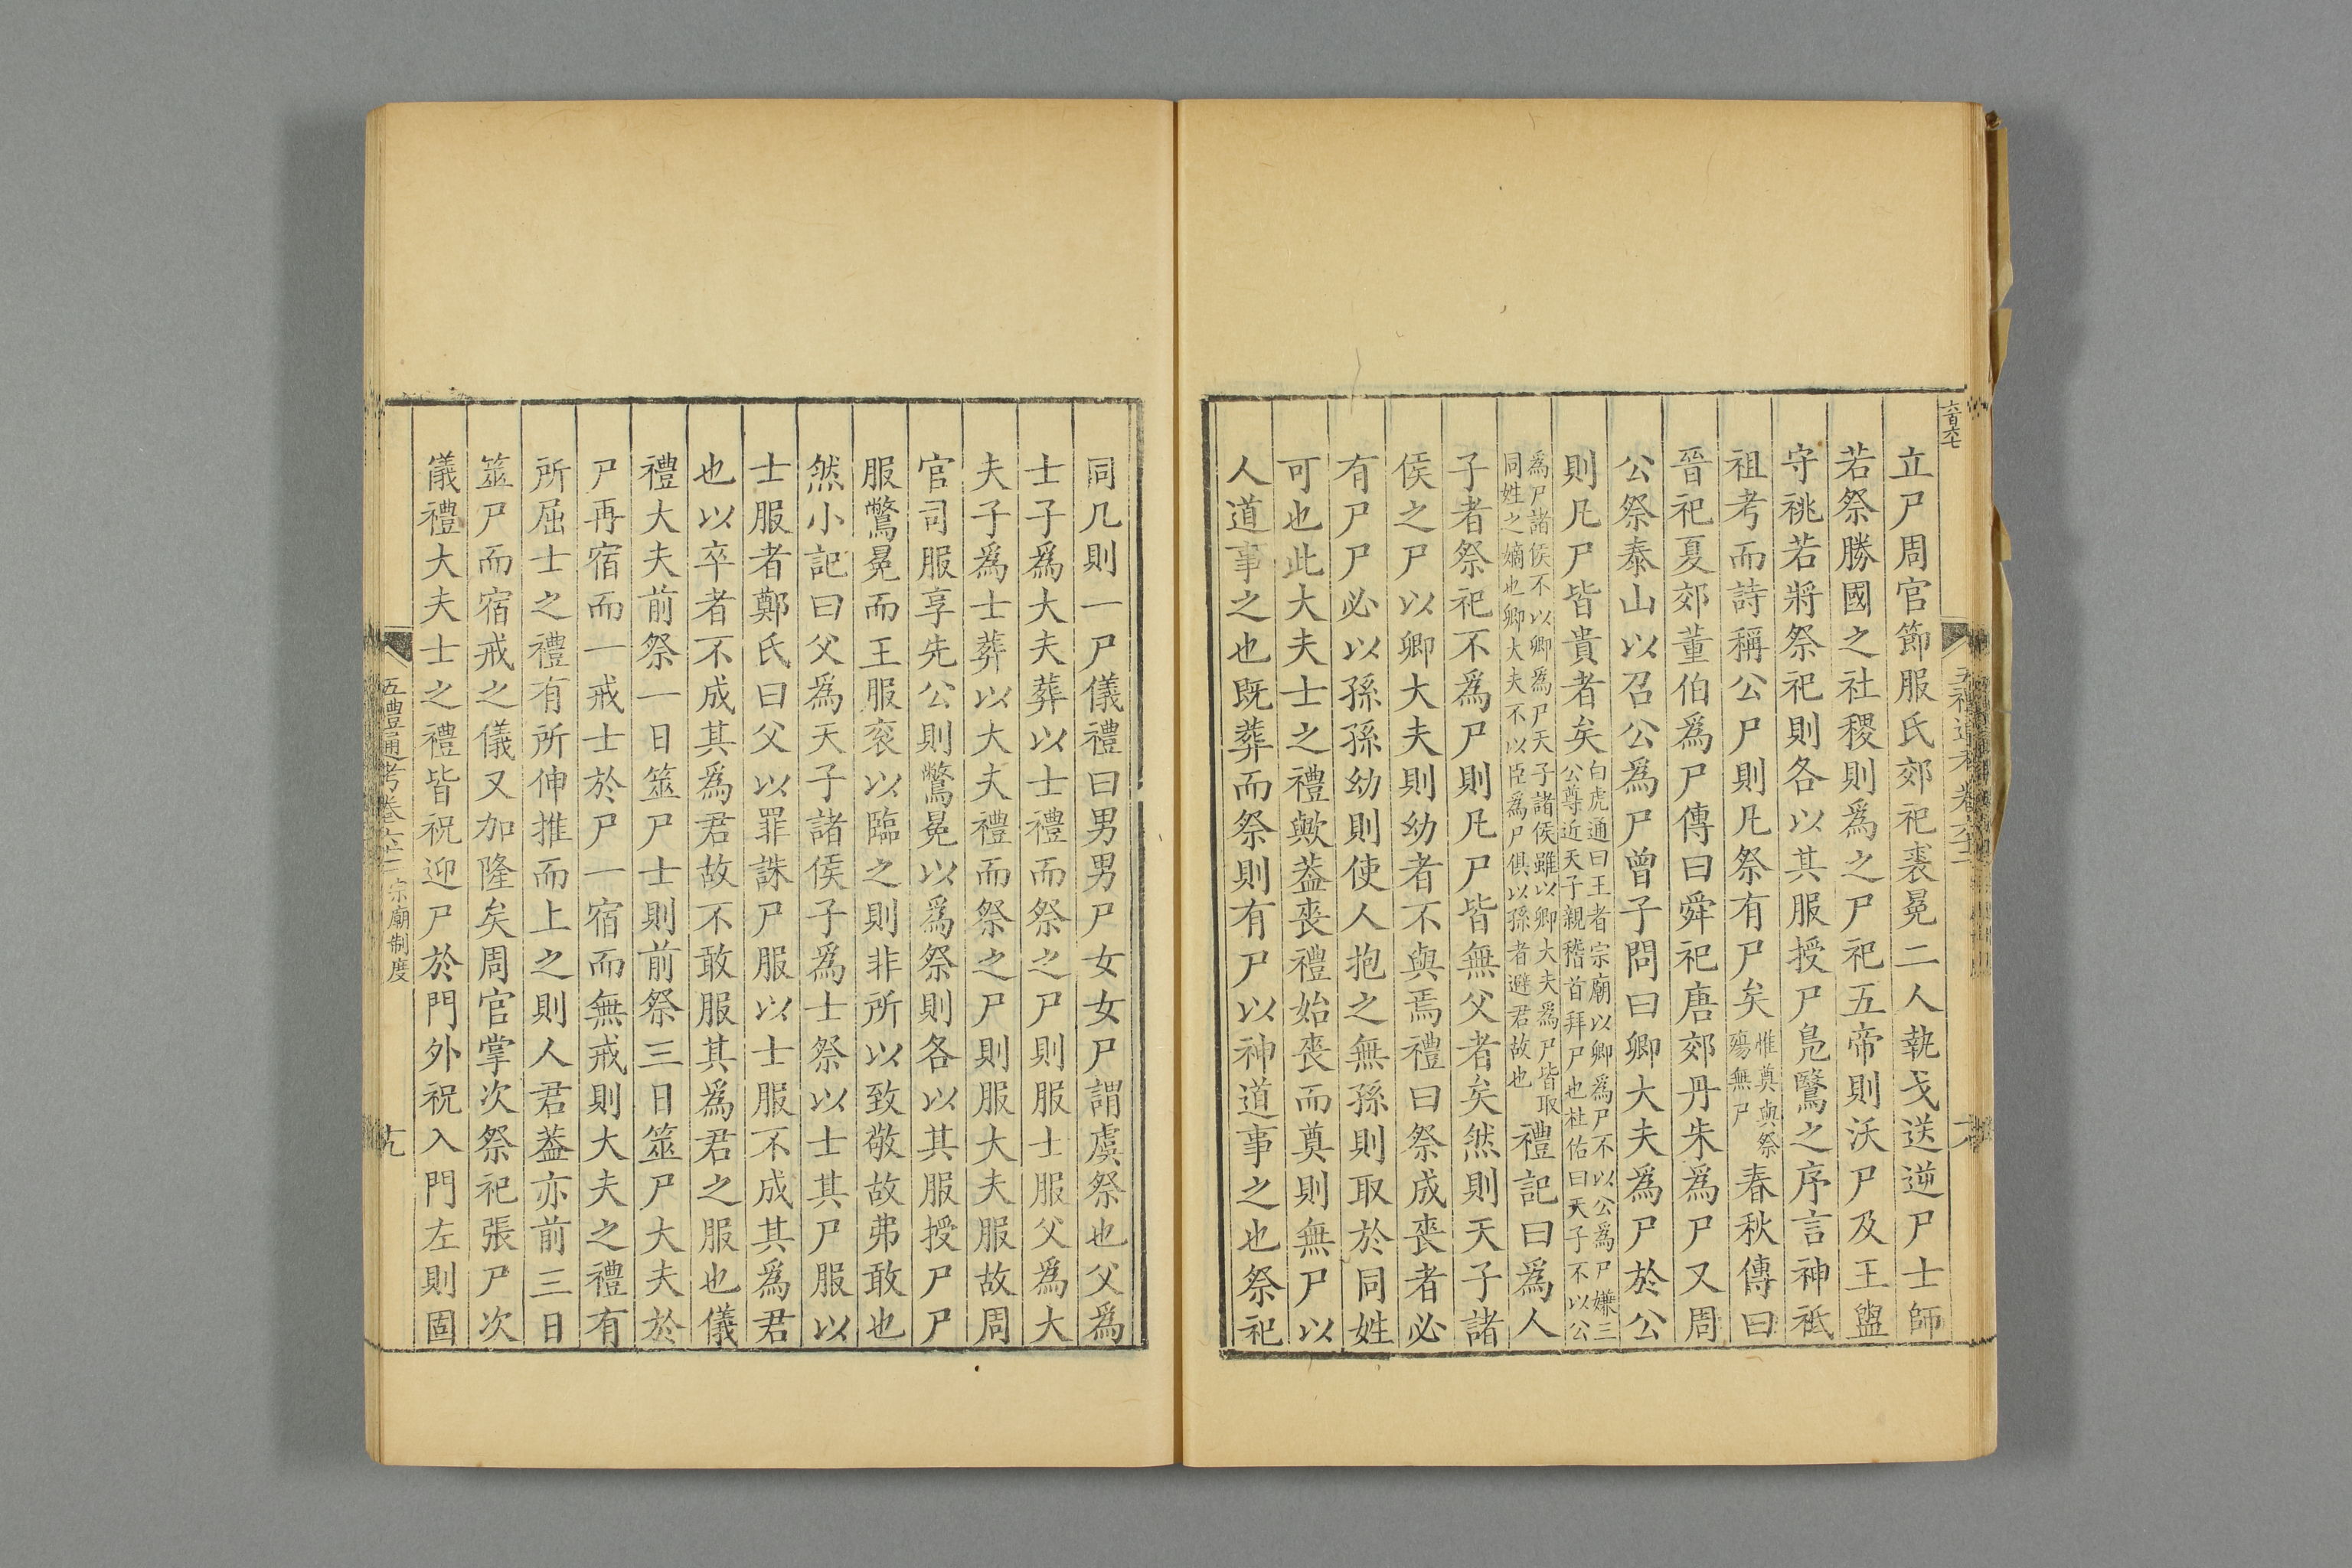 立尸周官節服氏郊祀裘冕二人執戈送逆尸士師
若祭勝國之社稷則爲之尸祀五帝則沃尸及王盥
守祧若將祭祀則各以其服授尸鳧鷖之序言神祗
祖考而詩稱公尸則凡祭有尸矣惟奠與祭殤無尸春秋傳曰
晉祀夏郊董伯爲尸傳曰舜祀唐郊丹朱爲尸又周
公祭泰山以召公爲尸曾子問曰卿大夫爲尸於公
則凡尸皆貴者矣白虎通曰王者宗廟以卿爲尸不以公爲尸嫌三
公尊近天子親稽首拜尸也杜佑曰天子不以公
爲尸諸侯不以卿爲尸天子諸侯雖以卿大夫爲尸皆取
同姓之嫡也卿大夫不以臣爲尸俱以孫者避君故也禮記曰爲人
子者祭祀不爲尸則凡尸皆無父者矣然則天子諸
侯之尸以卿大夫則幼者不與焉禮曰祭成喪者必
有尸尸必以孫孫幼則使人抱之無孫則取於同姓
可也此大夫士之禮歟葢喪禮始喪而奠則無尸以
人道事之也既葬而祭則有尸以神道事之也祭祀
同几則一尸儀禮曰男男尸女女尸謂虞祭也父爲
士子爲大夫葬以士禮而祭之尸則服士服父爲大
夫子爲士葬以大夫禮而祭之尸則服大夫服故周
官司服享先公則鷩冕以爲祭則各以其服授尸尸
服鷩冕而王服衮以臨之則非所以致敬故弗敢也
然小記曰父爲天子諸侯子爲士祭以士其尸服以
士服者鄭氏曰父以罪誅尸服以士服不成其爲君
也以卒者不成其爲君故不敢服其爲君之服也儀
禮大夫前祭一日筮尸士則前祭三日筮尸大夫於
尸再宿而一戒士於尸一宿而無戒則大夫之禮有
所屈士之禮有所伸推而上之則人君葢亦前三日
筮尸而宿戒之儀又加隆矣周官掌次祭祀張尸次
儀禮大夫士之禮皆祝迎尸於門外祝入門左則固
五禮通考卷六十二 宗廟制度